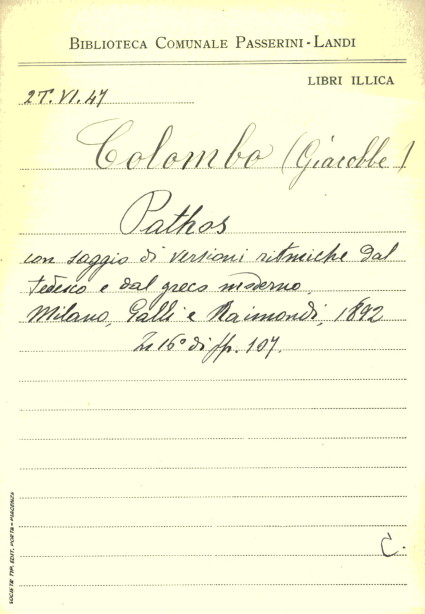 BIBLIOTECA COMUNALE PASSERINI-LANDI
LIBRI ILLICA
2T.VI.47
Colombo (Giacobbe)
Pathos
con saggio di versioni ritmiche dal
tedesco e dal greco moderno.
Milano, Galli e Raimondi, 1892
In 16° di pp. 107.
C.
SOCIETÀ TIP. EDIT. PORTA - PIACENZA